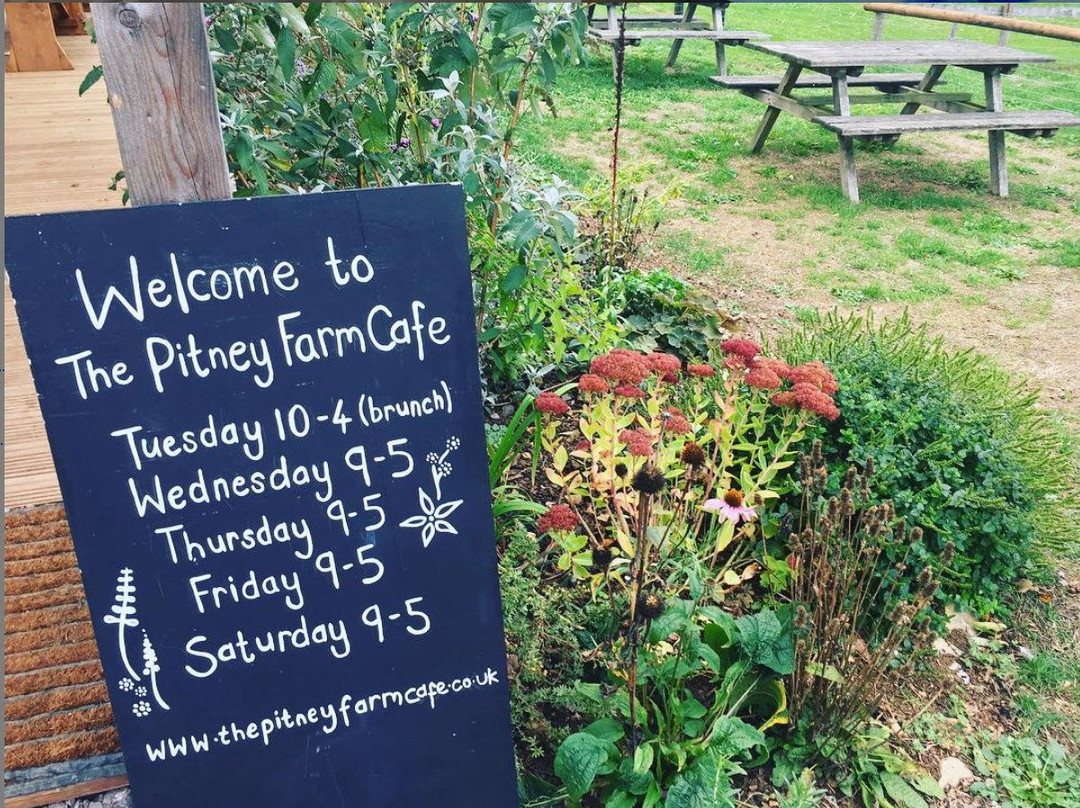 Welcome to
The Pitney Farm Cafe
Tuesday 10-4 (brunch)
Wednesday 9-5
Thursday 9-5
Friday 9-5
Saturday 9-5
www.thepitneyfarmcafe.co.uk